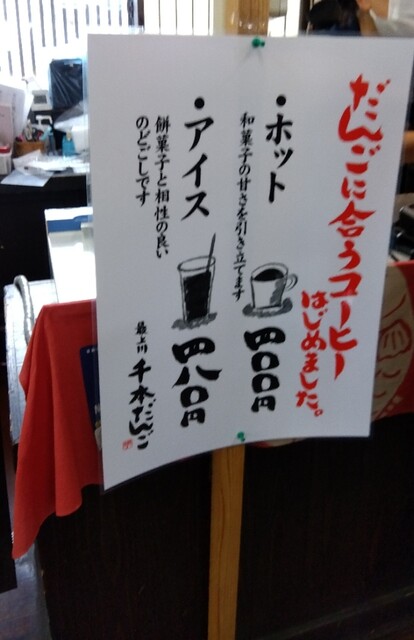 だんごに合うコーヒー
はじめました。
・ホット
和菓子の甘さを引き立てます
四〇〇円
・アイス
餅菓子と相性の良い
のどごしです
四八〇円
最上川
千本だんご